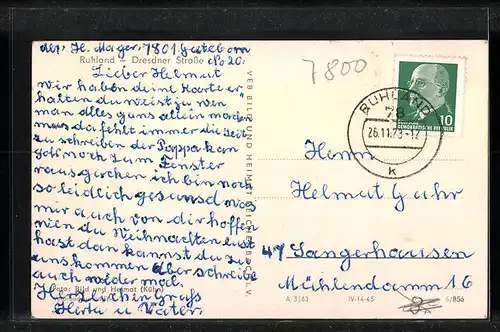 Abs. H. Mager, 7801 Guteborn
Ruhland – Dresdner Straße No 20.
Lieber Helmut
Wir haben deine Karte er-
halten du weist zu wen
man alles ganz allein machen
mus da fehlt immer die Zeit
zu schreiben der Pappa kan
grad noch zum Fenster
rausgucken ich bin noch
so leidlich gesund was
mir auch von dir hoffen
wen du Weihnachten Lust
hast dan kannst du zu
uns kommen aber schreibe
auch wieder mal.
Foto: Bild und Heimat (Kühn)
Herzlichen Gruß
Herta u Vater.
VEB BILD UND HEIMAT REICHENBACH I. V.
7800
RUHLAND
78
26.11.73-12
k
10
DEUTSCHE
DEMOKRATISCHE REPUBLIK
Herrn
Helmut
47 Sangerhausen
Mühlendamm 16
A 3/63 IV-14-45 6/856